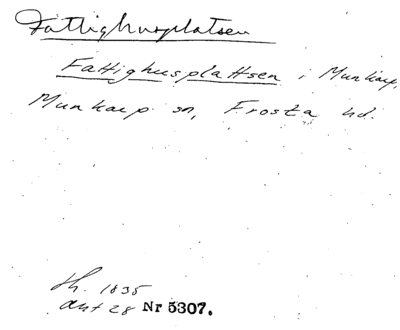 Fattighusplatsen
Fattighusplattsen i Munkarp,
Munkarp sn, Frosta hd.
Lh. 1835
akt 28 Nr 5307.